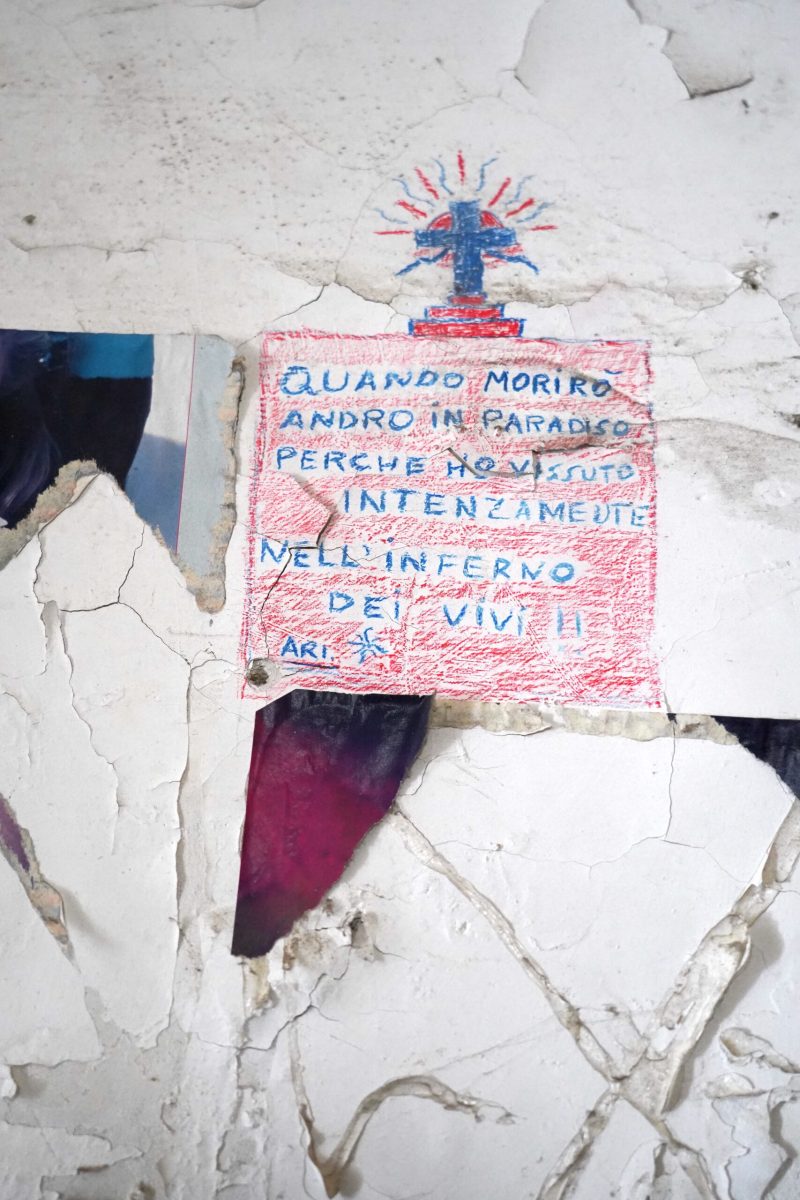 QUANDO MORIRÒ
ANDRO IN PARADISO
PERCHE HO VISSUTO
INTENZAMEUTE
NELL'INFERNO
DEI VIVI !!
ARI.